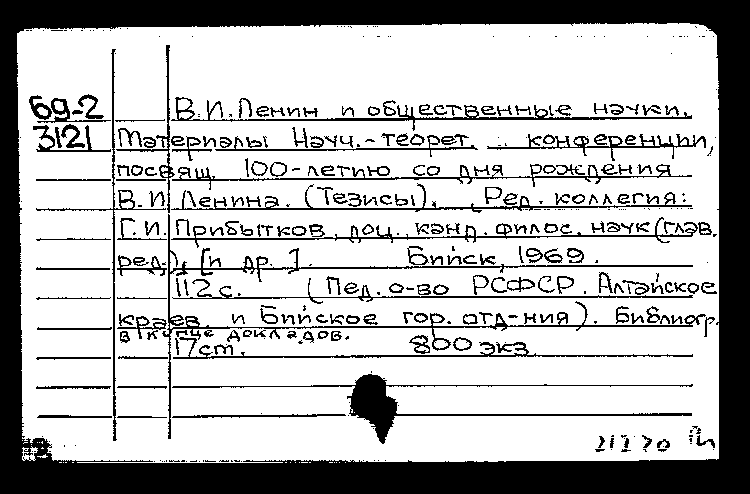 69-2 В.И.Ленин и общественные науки.
3121 Материалы Науч.-теорет. конференции,
посвящ. 100-летию со дня рождения
В.И. Ленина. (Тезисы). Ред. коллегия:
Г.И. Прибытков, доц., канд. филос. наук (глав.
ред.), [и др.]. Бийск, 1969.
112 с. (Пед. о-во РСФСР. Алтайское
краев. и Бийское гор. отд-ния). Библиогр.
в конце докладов.
17 см. 800 экз.